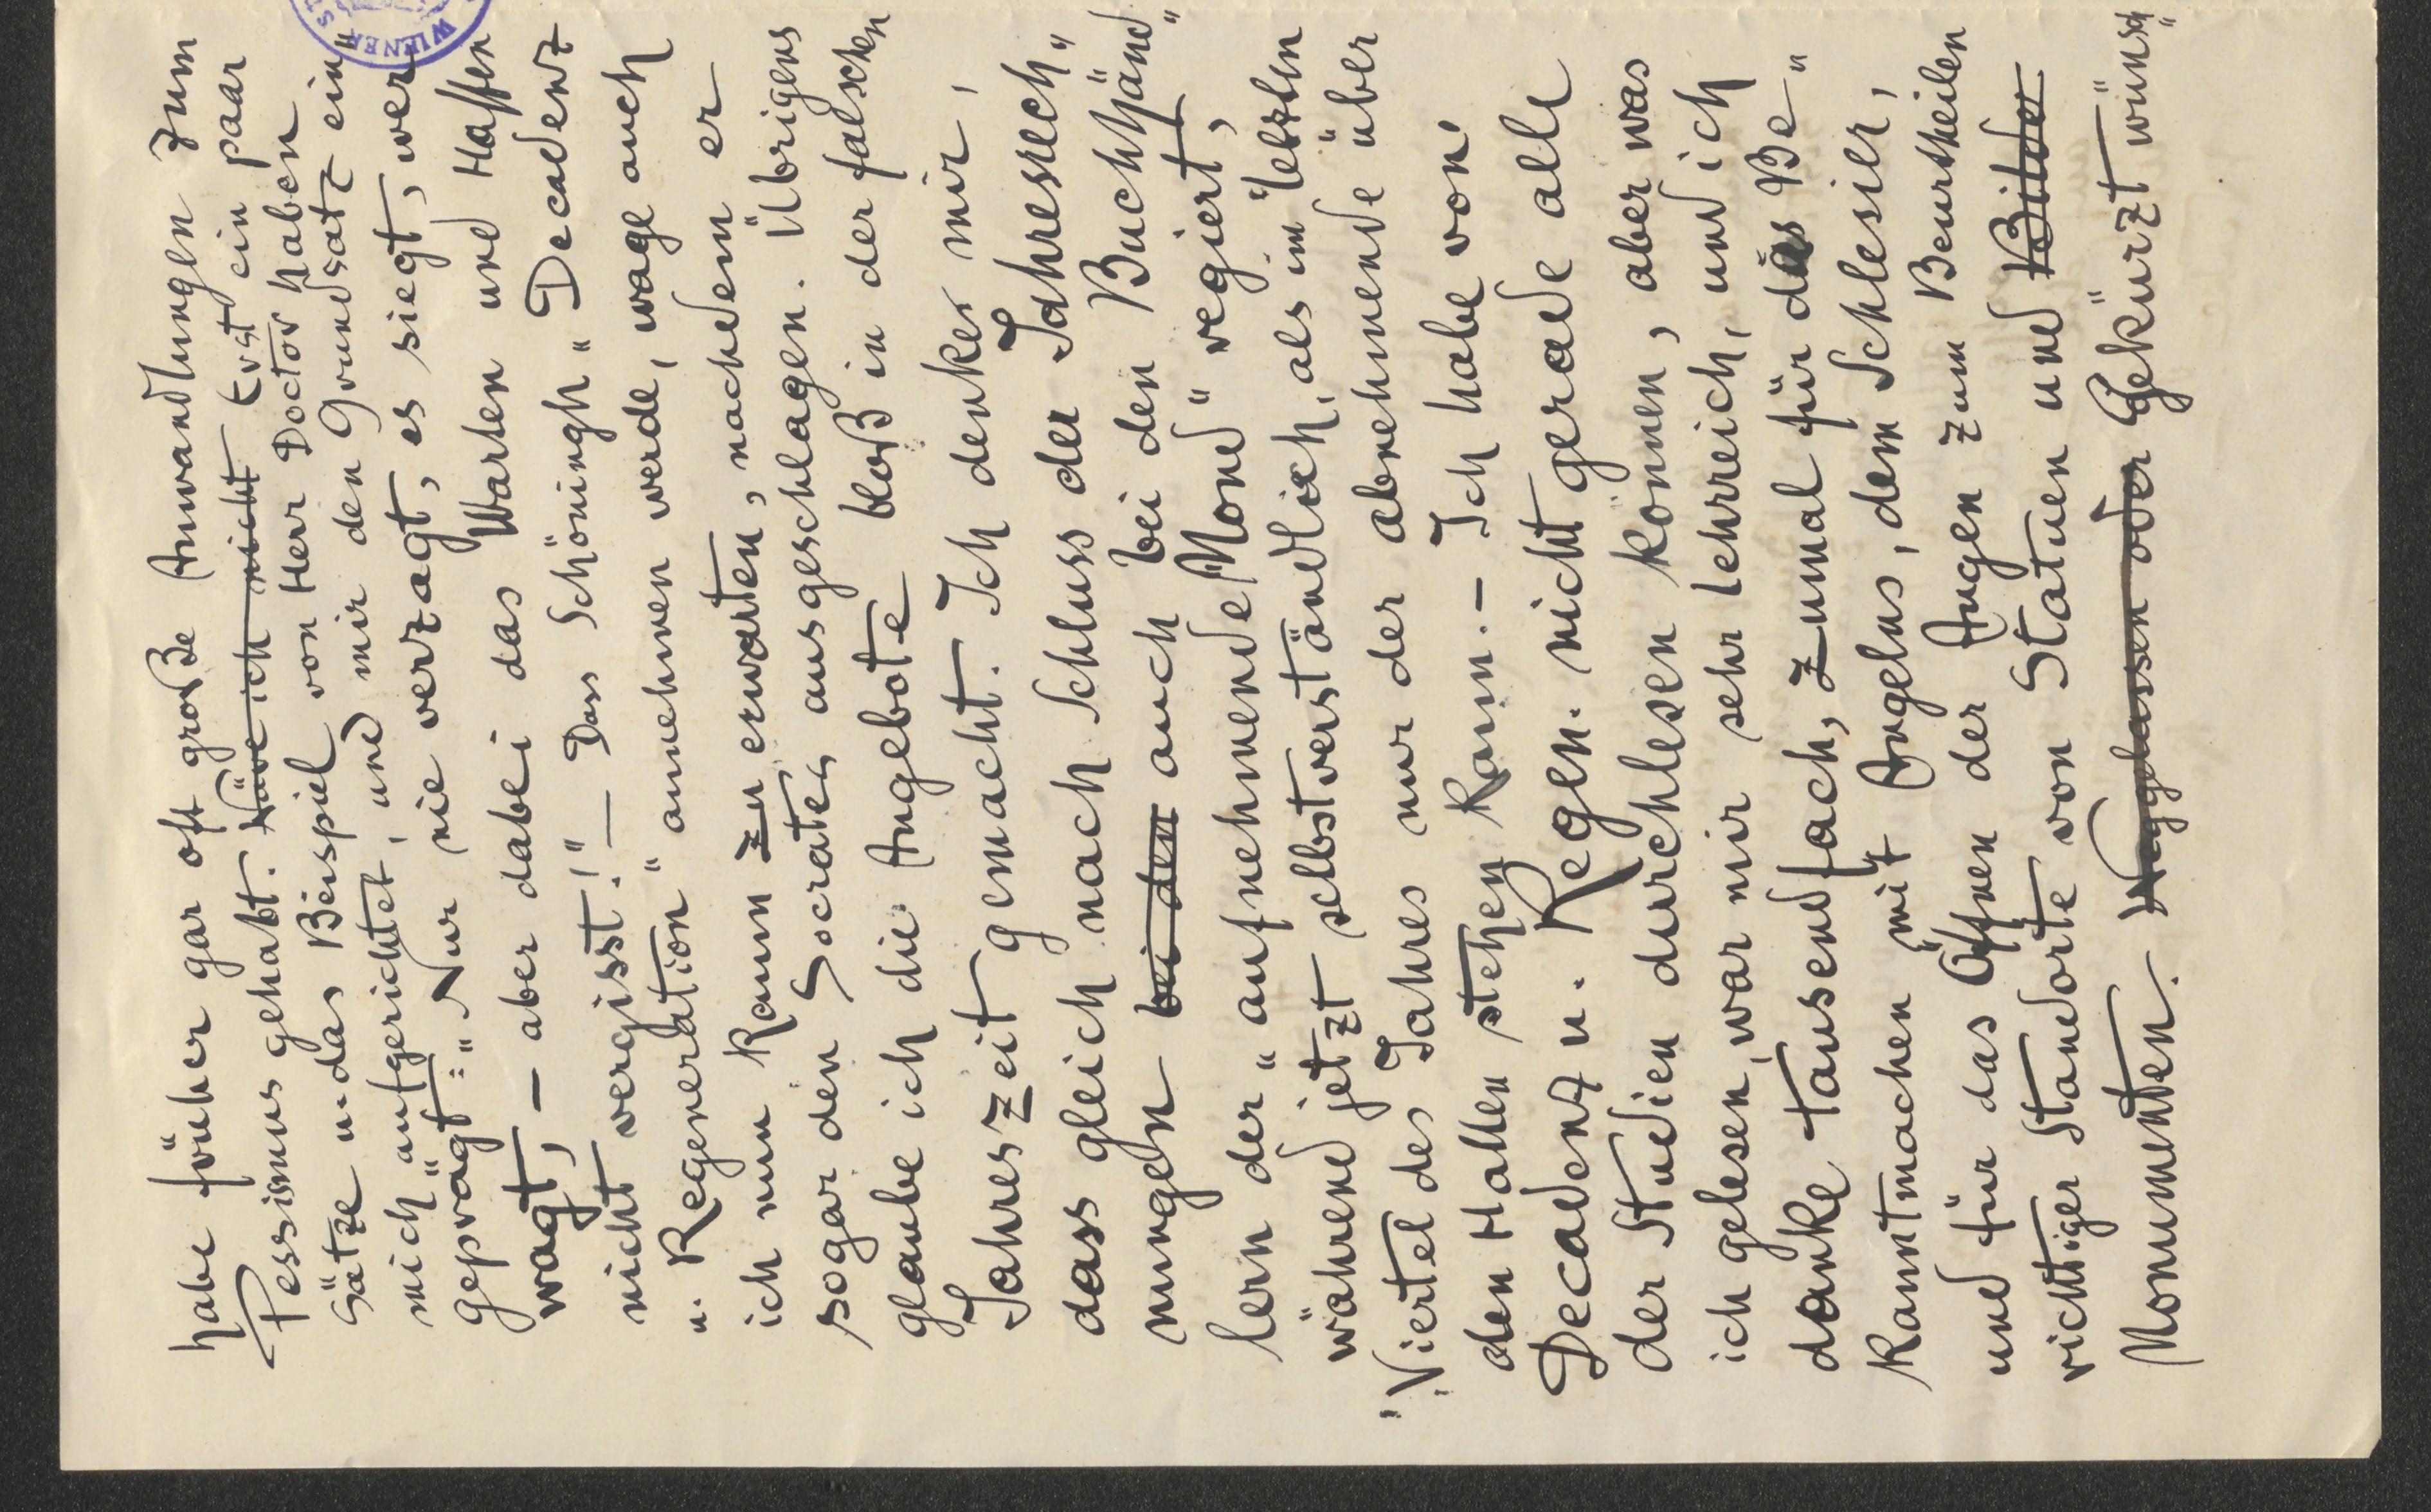 habe früher gar oft große Anwandlungen zum
Pessimus gehabt. Wäre ich nicht Erst ein paar
Sätze u. das Beispiel von Herr Doctor haben
mich aufgerichtet, und mir den Grundsatz ein„
geprägt: „Nur nie verzagt, es siegt, wer
wagt, – aber dabei das Warten und Hoffen
nicht vergisst!" – Dass Schöningh „Decadenz
u. Regeneration" annehmen werde, wage auch
ich nun kaum zu erwarten, nachdem er
sogar den Socrates ausgeschlagen. Übrigens
glaube ich die Angebote bloß in der falschen
Jahreszeit gemacht. Ich denke mir,
dass gleich nach Schluss der Jahresrech„
nungen bei den auch bei den Buchhänd„
lern der „aufnehmende Mond" regiert,
während jetzt selbstverständlich, als im letzten
Viertel des Jahres nur der abnehmende über
den Hallen stehen kann. – Ich habe von
Decadenz u. Regen. nicht gerade alle
der Studien durchlesen können, aber was
ich gelesen, war mir sehr lehrreich, und ich
danke tausendfach, zumal für das Be„
kanntmachen mit Angelus, dem Schlesier,
und für das Öffnen der Augen zum Beurtheilen
richtiger Standorte von Statuen und Bilder
Monumenten. Weggelassen oder Gekürzt wünsch„
WIENER ST